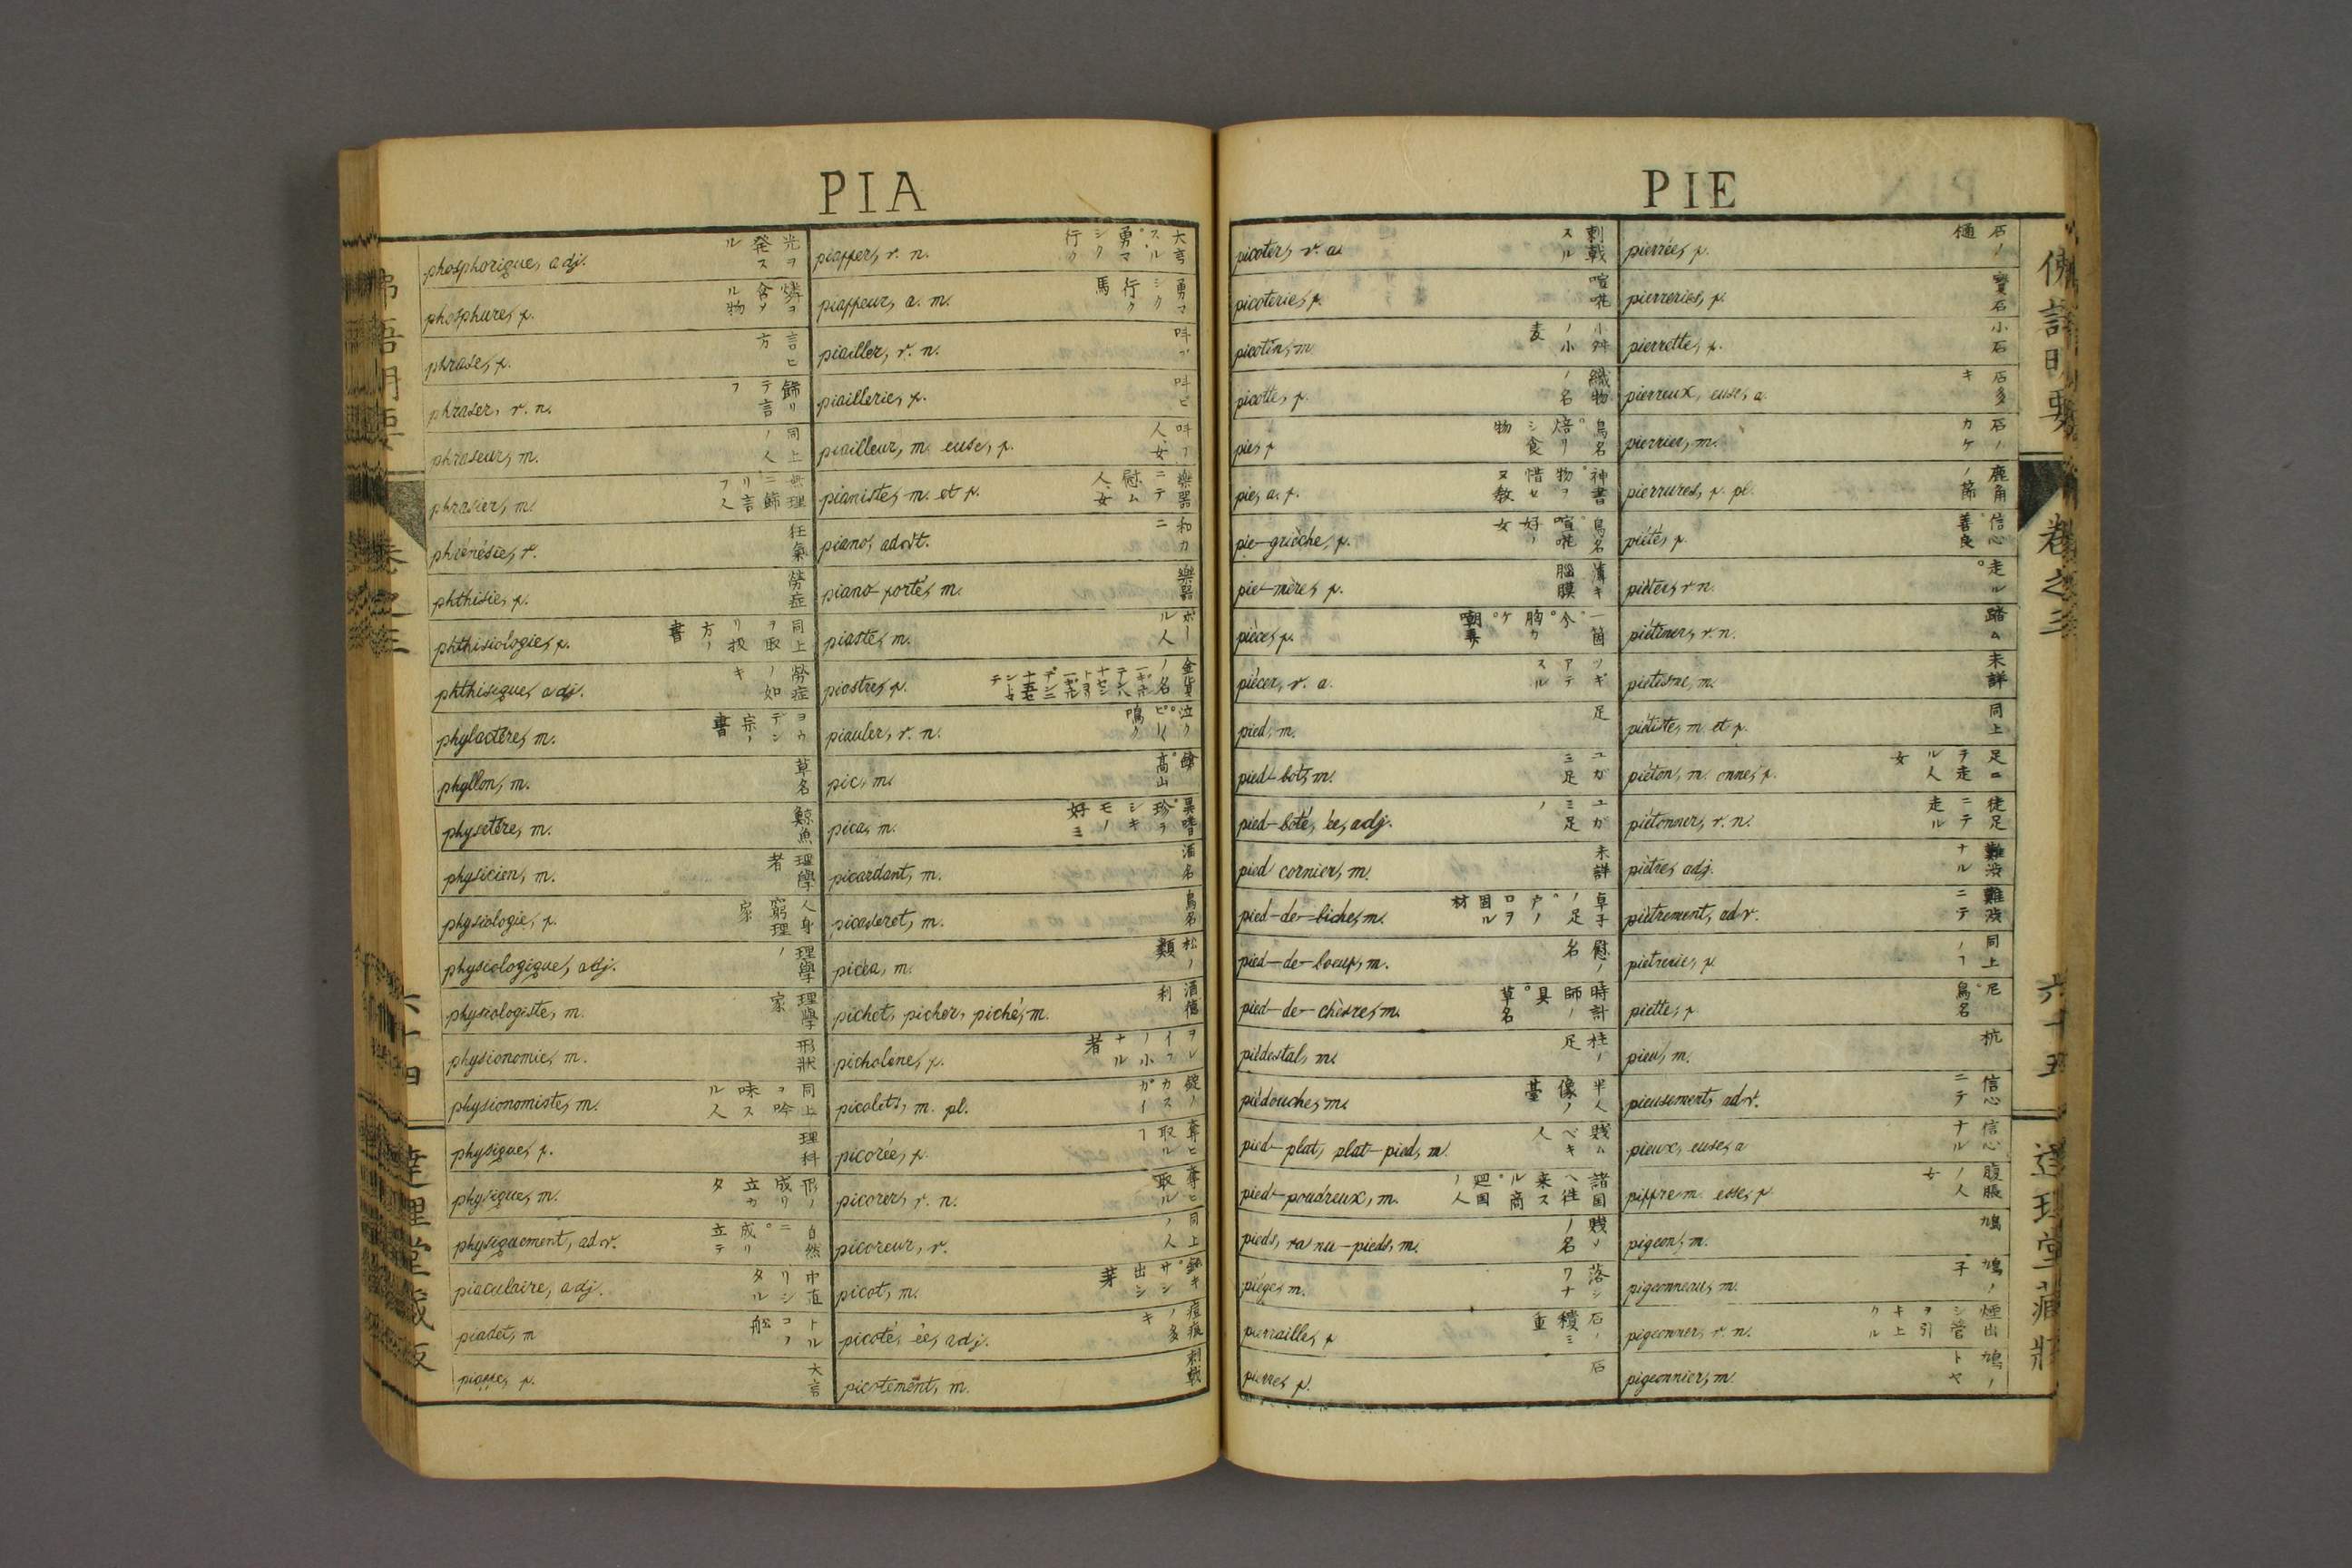 PIA
phosphorique, adj. 光ヲ発スル
phosphure, f. 燐ヲ含メル物
phrase, f. 言ヒ方
phraser, v. n. 飾リテ言フ
phraseur, m. 同上ノ人
phrasier, m. 無理ニ飾リ言フ人
phrénésie, f. 狂氣
phthisie, f. 勞症
phthisiologie, f. 同上ヲ取リ扱方ノ書
phthisique, adj. 勞症ノ如キ
phylactère, m. ヨウデン宗ノ書
phyllon, m. 草名
physetère, m. 鯨魚
physicien, m. 理學者
physiologie, f. 人身窮理家
physiologique, adj. 理學ノ
physiologiste, m. 理學家
physionomie, m. 形狀
physionomiste, m. 同上ヲ吟味スル人
physique, f. 理科
physique, m. 形ノ成リ立カタ
physiquement, adv. 自然ニ。成リ立テ
piaculaire, adj.
piadet, m
piaffe, f. 大言
piaffer, v. n. 大言スル。勇マシク行ク
piaffeur, a. m. 勇マシク行ク馬
piailler, v. n. 叫ブ
piaillerie, f. 叫ビ
piailleur, m. euse, f. 叫フ人、女
pianiste, m. et f. 樂器ニテ慰ム人、女
piano, advt. 和カニ
piano-forté, m. 樂器
piaste, m. ポール人
piastre, f. 金貨ノ名
piauler, v. n. 泣ク。ピーー鳴ク
pic, m. 高山
pica, m. 異嗜。珍ラシキモノ好ミ
picardant, m. 酒名
picaveret, m. 鳥名
picéa, m. 松ノ類
pichet, picher, piché, m. 酒徳利
picholine, f. ヲレイフノ小ナル者
picolets, m. pl. 錠ノカスガイ
picorée, f. 奪ヒ取ルヿ
picorer, v. n. 奪ヒ取ル
picoreur, v. 同上ノ人
picot, m.
picoté, ée, adj. 痘痕ノ多キ
picotement, m. 刺戟
PIE
picoter, v. a. 刺戟スル
picoterie, f. 喧嘩
picotin, m 小舛ノ小麦
picotte, f. 織物ノ名
pie, f 鳥名。焙リシ食物
pie, a. f.
pie-grièche, f. 鳥名。喧嘩好ノ女
pie-mère, f. 薄キ腦膜
pièce, f.
piécer, v. a. ツギアテスル
pied, m. 足
pied-bot, m. ユガミ足
pied-boté, ée, adj. ユガミ足ノ
pied cornier, m. 未詳
pied-de-biche, m. 卓子ノ足。戸ノロヲ固ル材
pied-de-boeuf, m. 慰ノ名
pied-de-chèvre, m. 時計師ノ具。草名
piédestal, m. 柱ノ足
piédouche, m. 半人像ノ臺
pied-plat, plat-pied, m 賤ムベキ人
pied-poudreux, m. 諸国ヘ往来スル商。廻国ノ人
pieds, va nu-pieds, m. 賤ノ名
piége, m. 落シワナ
pierraille, f 石ノ積ミ重
pierre, f. 石
pierrée, f. 石ノ樋
pierrerie, f. 寳石
pierrette, f. 小石
pierreux, euse, a. 石多キ
pierrier, m. 石ノカケ
pierrures, f. pl. 鹿角ノ節
piété, f. 信心。善良
piéter, v n. 走ル。
piétiner, v. n. 踏ム
piétisme, m. 未詳
piétiste, m. et f. 同上
piéton, m. onne, f. 足ニテ走ル人女
piétonner, v. n. 徒足ニテ走ル
piètre, adj. 難渋ナル
piètrement, adv. 難渋ニテ
piètrerie, f. 同上ノヿ
piette, f. 尼。鳥名
pieu, m. 杭
pieusement, adv. 信心ニテ
pieux, euse, a 信心ナル
piffre m. esse, f. 腹脹ノ人女
pigeon, m. 鳩
pigeonneau, m. 鳩ノ子
pigeonner, v. n. 煙出シ管ヲ引キ上クル
pigeonnier, m. 鳩ノトヤ
佛語明要 卷之三 六十五 達理堂藏版